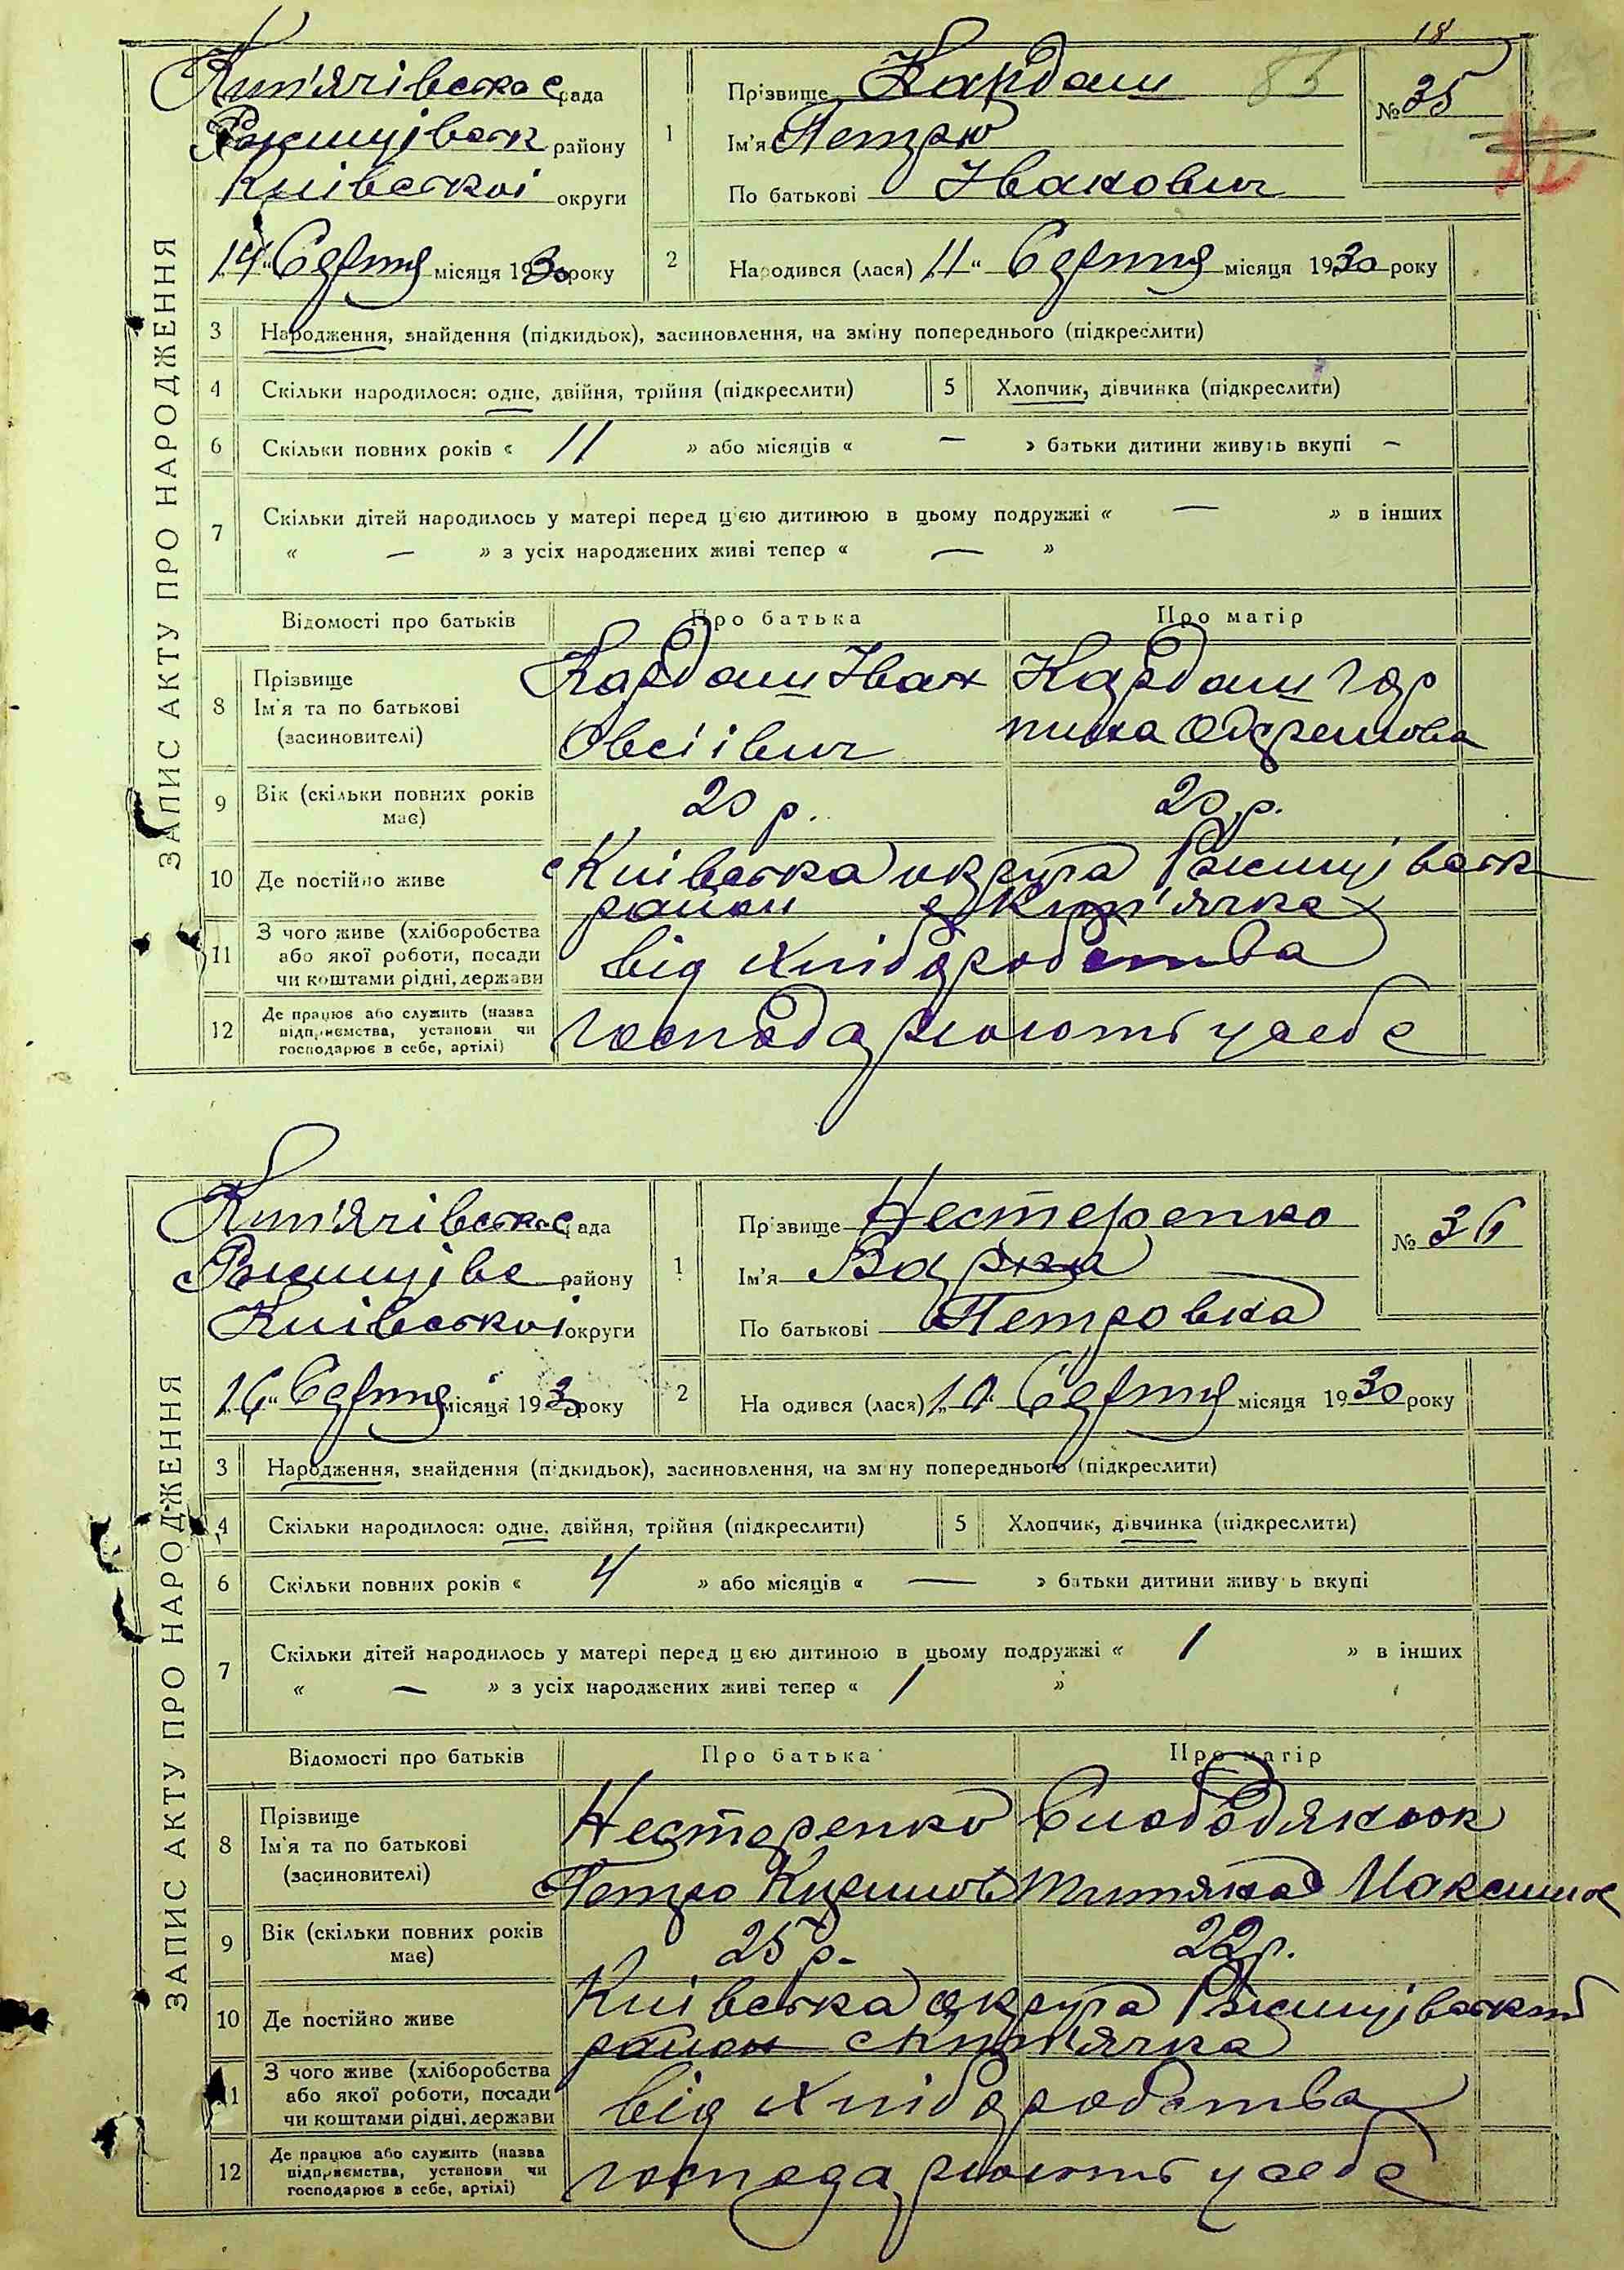 18
Кип'ячівська с рада
Ржищівськ району
Київської округи
"14" Серпня місяця 1930 року
1 Прізвище Кардаш 85
Ім'я Петро
По батькові Іванович
№ 35
2 Народився (лася) "11" Серпня місяця 1930 року
ЗАПИС АКТУ ПРО НАРОДЖЕННЯ
3 Народження, знайдення (підкидьок), засиновлення, на зміну попереднього (підкреслити)
4 Скільки народилося: одне, двійня, трійня (підкреслити) 5 Хлопчик, дівчинка (підкреслити)
6 Скільки повних років « 11 » або місяців « — » батьки дитини живуть вкупі —
7 Скільки дітей народилось у матері перед цією дитиною в цьому подружжі « — » в інших
« — » з усіх народжених живі тепер « — »
Відомості про батьків Про батька Про матір
8 Прізвище Ім'я та по батькові (засиновителі) Кардаш Іван Кардаш Гор
Овсіівич пина
9 Вік (скільки повних років має) 20 р. 20 р.
10 Де постійно живе Київська округа Ржищівськ
район с Кип'ячка
11 З чого живе (хліборобства або якої роботи, посади чи коштами рідні, держави від хліборобства
12 Де працює або служить (назва підприємства, установи чи господарює в себе, артілі) господарюють у себе
Кип'ячівська с рада
Ржищівс району
Київської округи
"16" Серпня місяця 1930 року
1 Прізвище Нестеренко
Ім'я Варка
По батькові Петровна
№ 36
2 Народився (лася) "10" Серпня місяця 1930 року
ЗАПИС АКТУ ПРО НАРОДЖЕННЯ
3 Народження, знайдення (підкидьок), засиновлення, на зміну попереднього (підкреслити)
4 Скільки народилося: одне, двійня, трійня (підкреслити) 5 Хлопчик, дівчинка (підкреслити)
6 Скільки повних років « 4 » або місяців « — » батьки дитини живуть вкупі
7 Скільки дітей народилось у матері перед цією дитиною в цьому подружжі « 1 » в інших
« — » з усіх народжених живі тепер « 1 »
Відомості про батьків Про батька Про матір
8 Прізвище Ім'я та по батькові (засиновителі) Нестеренко Слободянюк
Петро Кирилов Титяна Максимов
9 Вік (скільки повних років має) 25 р. 22 р.
10 Де постійно живе Київська округа Ржищівський
район с Кип'ячка
11 З чого живе (хліборобства або якої роботи, посади чи коштами рідні, держави від хліборобства
12 Де працює або служить (назва підприємства, установи чи господарює в себе, артілі) господарюють у себе